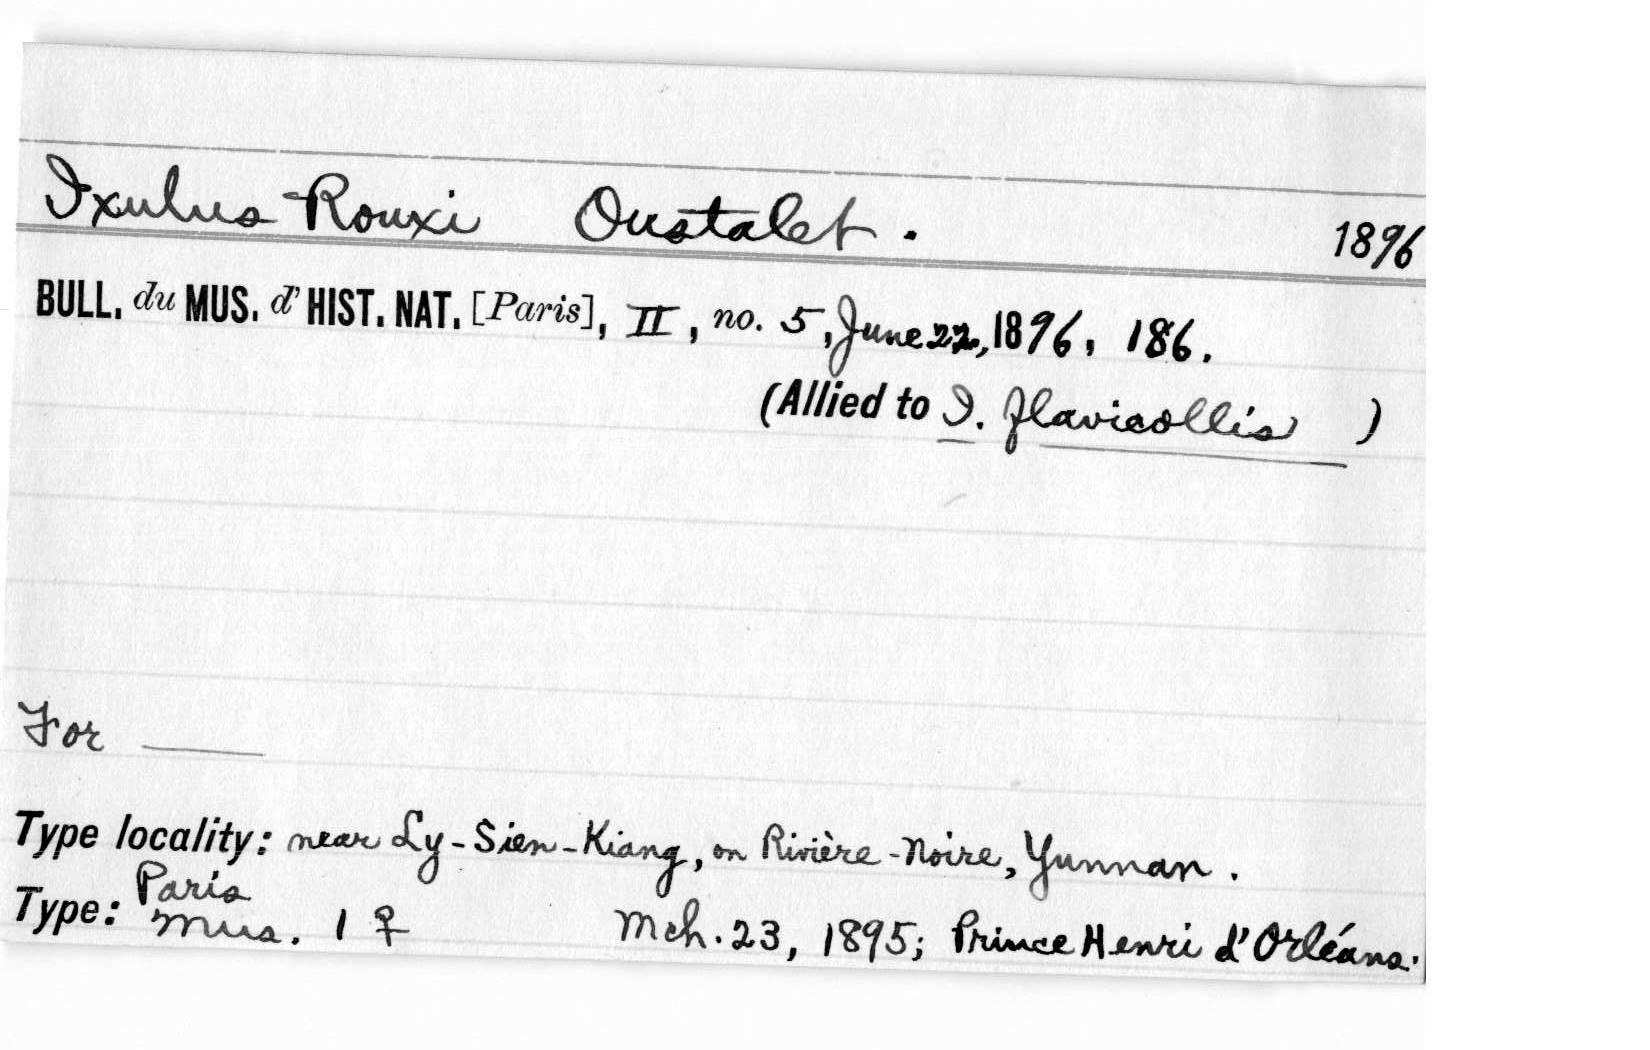 Ixulus Rouxi Oustalet. 1896
BULL. du MUS. d' HIST. NAT. [Paris], II, no. 5, June 22, 1896, 186.
(Allied to I. flavicollis)
For ____
Type locality: near Ly-Sien-Kiang, on Rivière-Noire, Yunnan.
Type: Paris Mus. 1 ♀ Mch. 23, 1895; Prince Henri d'Orléans.